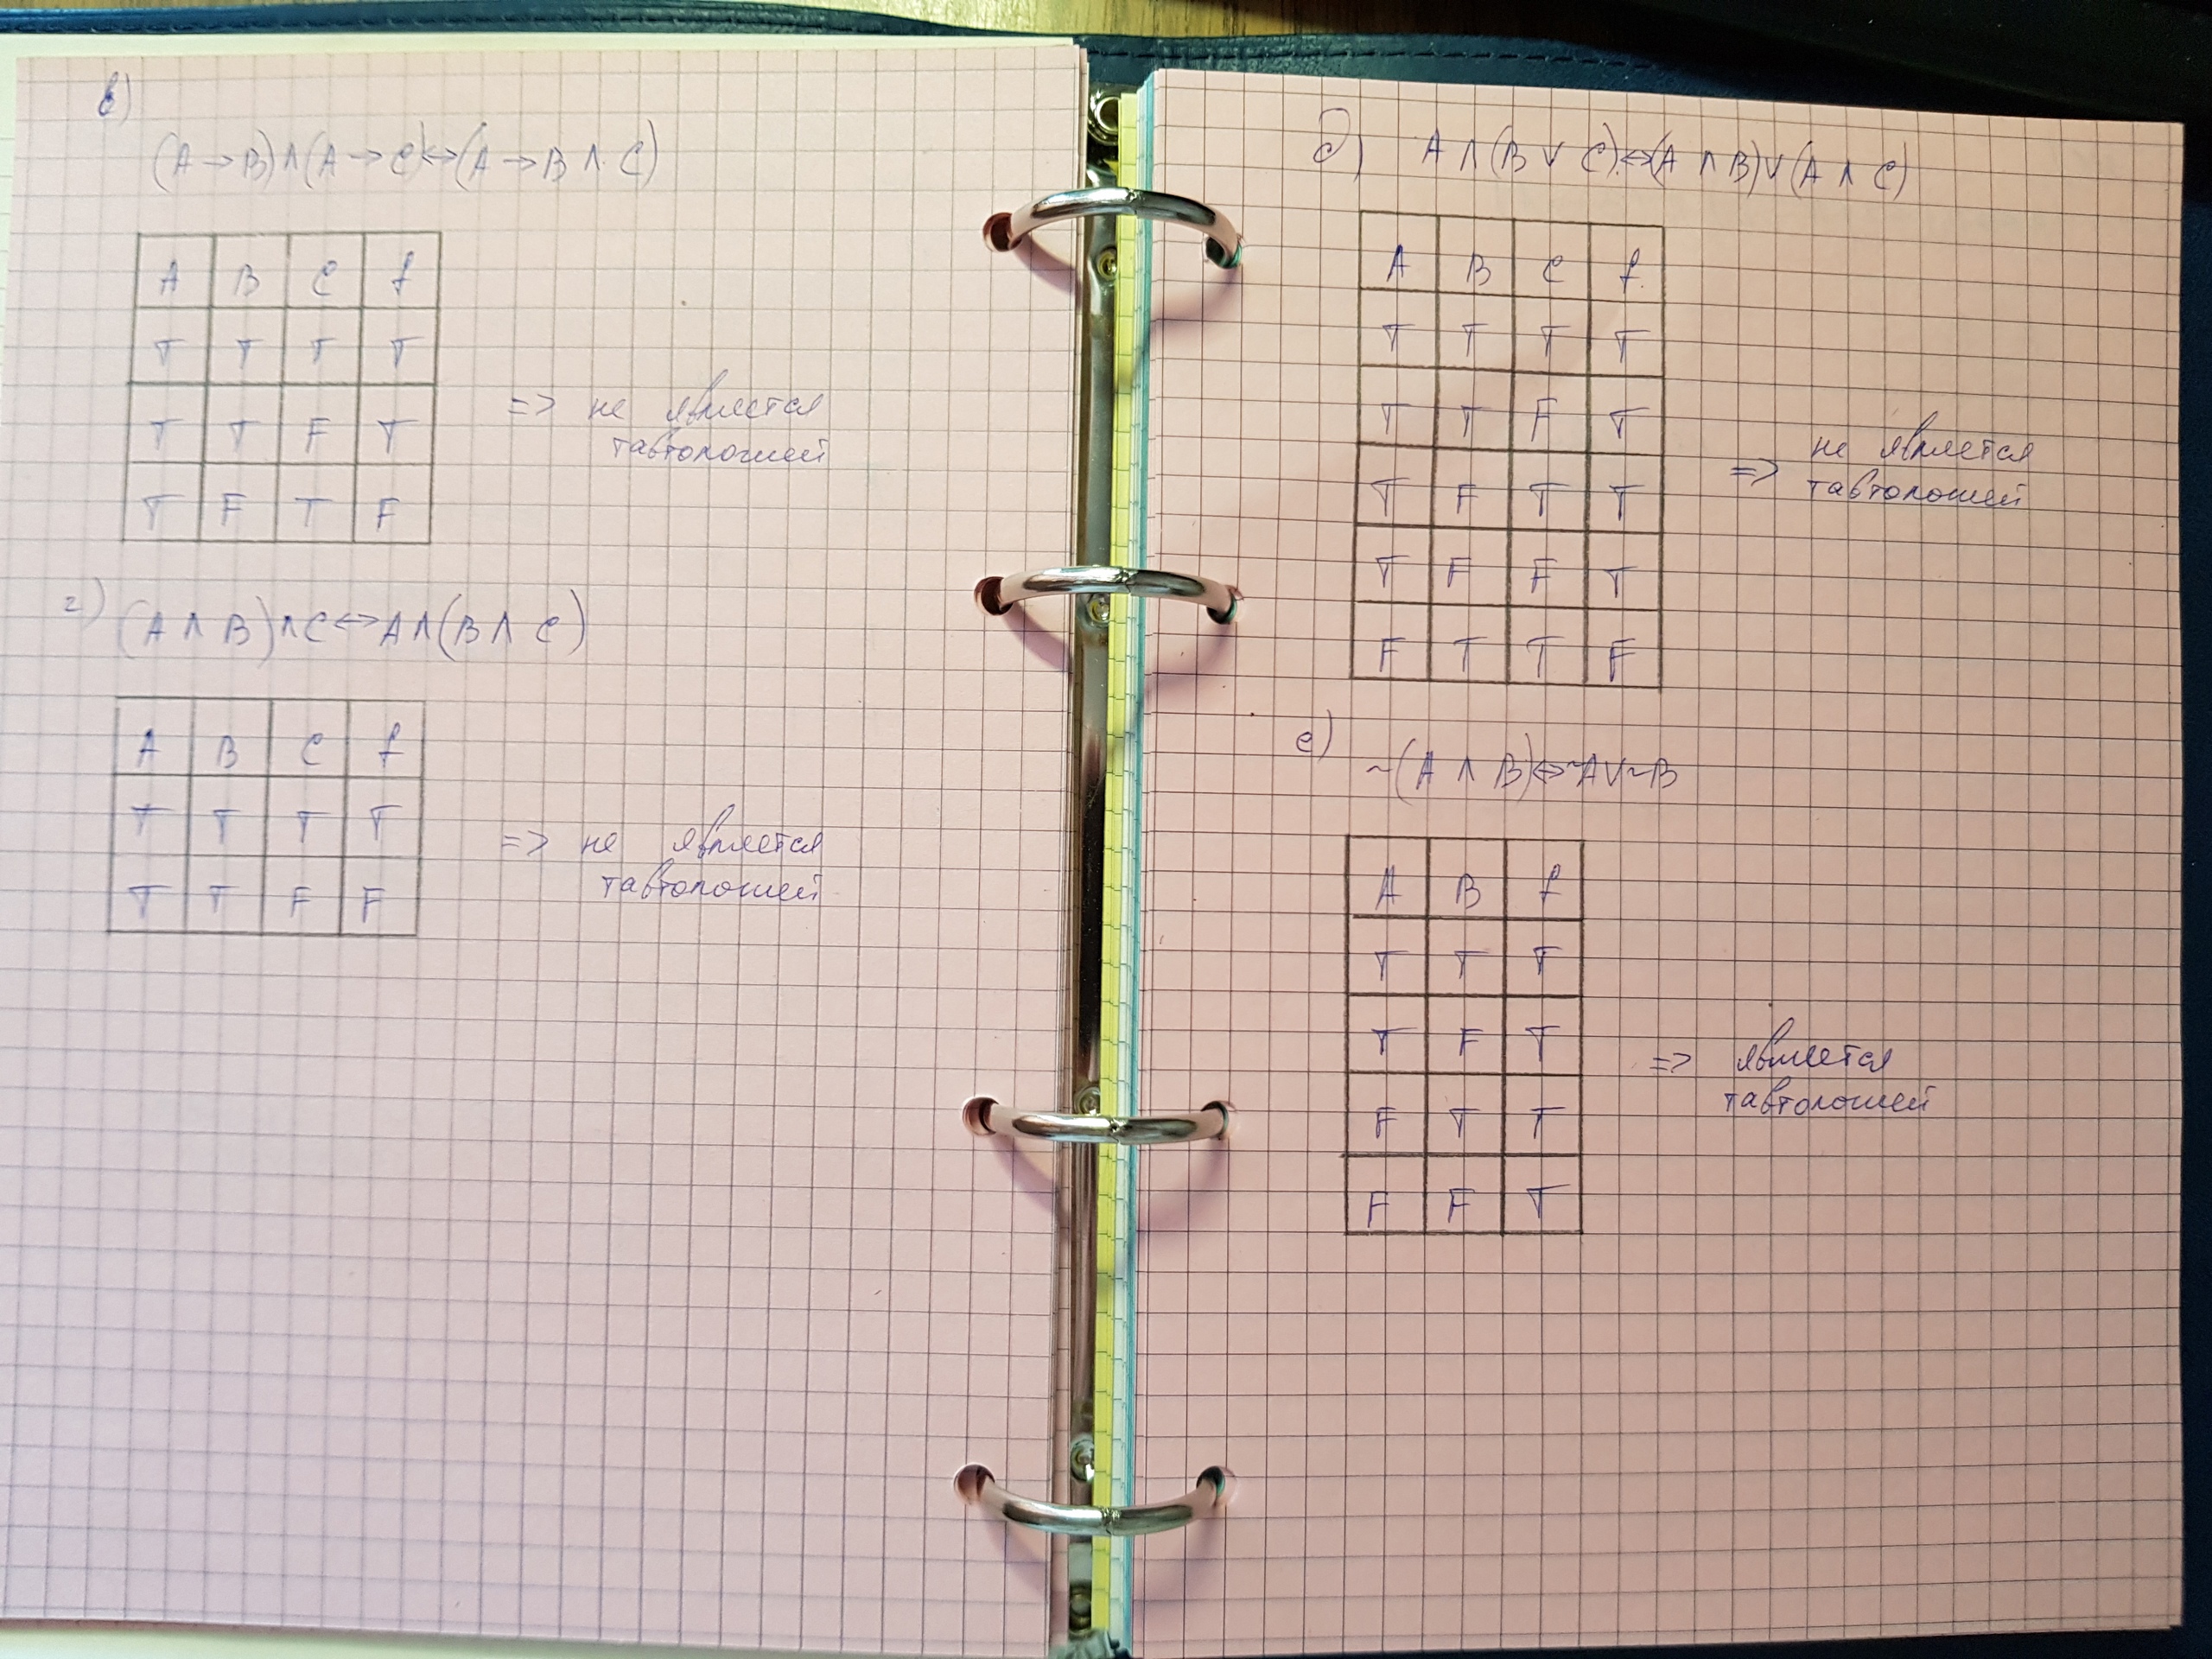 в)
(A → B) ∧ (A → C) ↔ (A → B ∧ C)
A B C f
T T T T
T T F T
T F T F
=> не является
тавтологией
г) (A ∧ B) ∧ C ↔ A ∧ (B ∧ C)
A B C f
T T T T
T T F F
=> не является
тавтологией
д) A ∧ (B ∨ C) ↔ (A ∧ B) ∨ (A ∧ C)
A B C f
T T T T
T T F T
T F T T
T F F T
F T T F
=> не является
тавтологией
е) ~(A ∧ B) ↔ ~A ∨ ~B
A B f
T T T
T F T
F T T
F F T
=> является
тавтологией